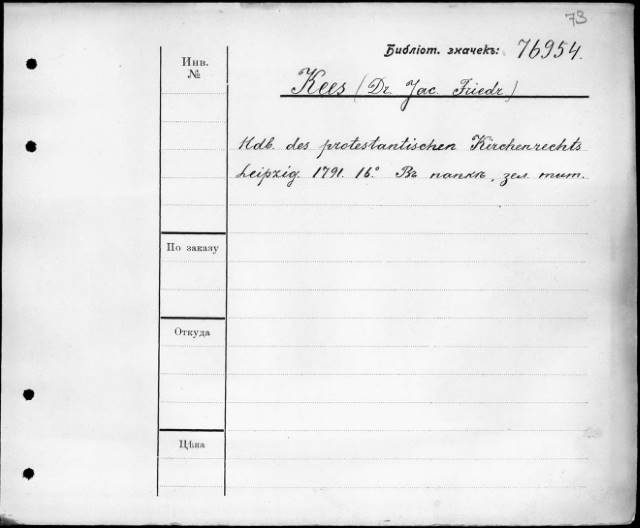 73
Библіот. значекъ: 76954.
Инв.
№
Kees (Dr. Jac. Friedr.)
Hdb. des protestantischen Kirchenrechts
Leipzig. 1791. 16.° Въ папкѣ, зел. тит.
По заказу
Откуда
Цѣна